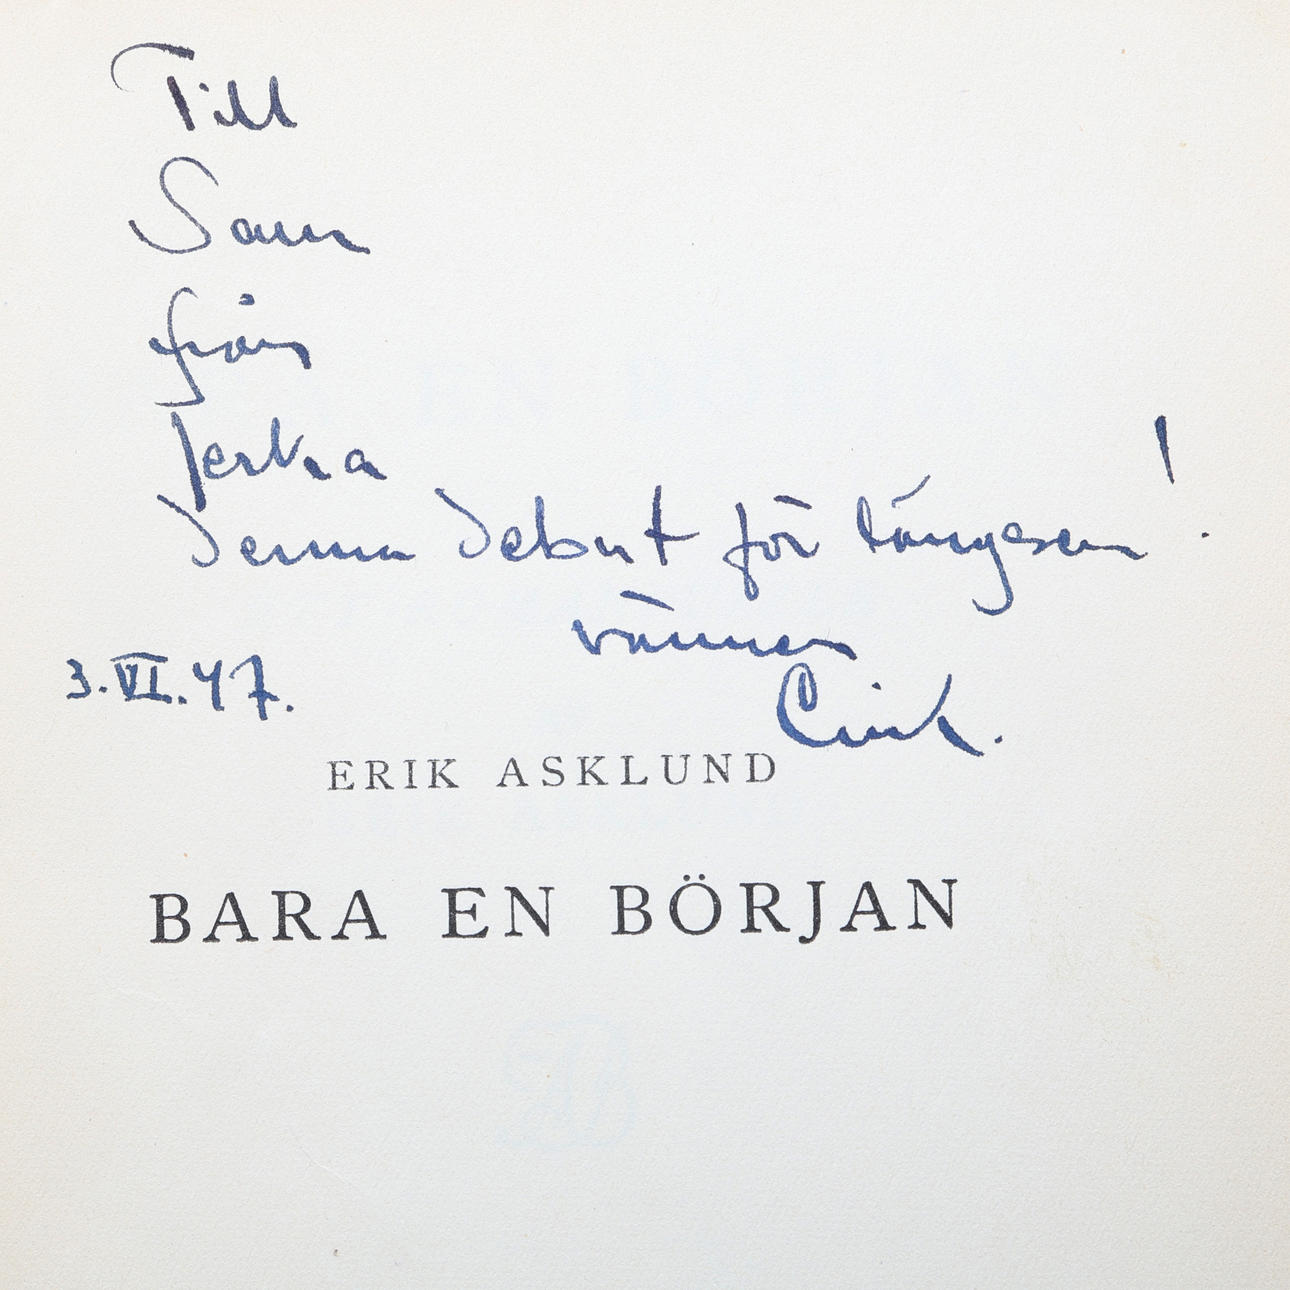 Till
Sam
från
Jerka
Denna debut för längesen!
vännen
Erik.
3.VI.47.
ERIK ASKLUND
BARA EN BÖRJAN